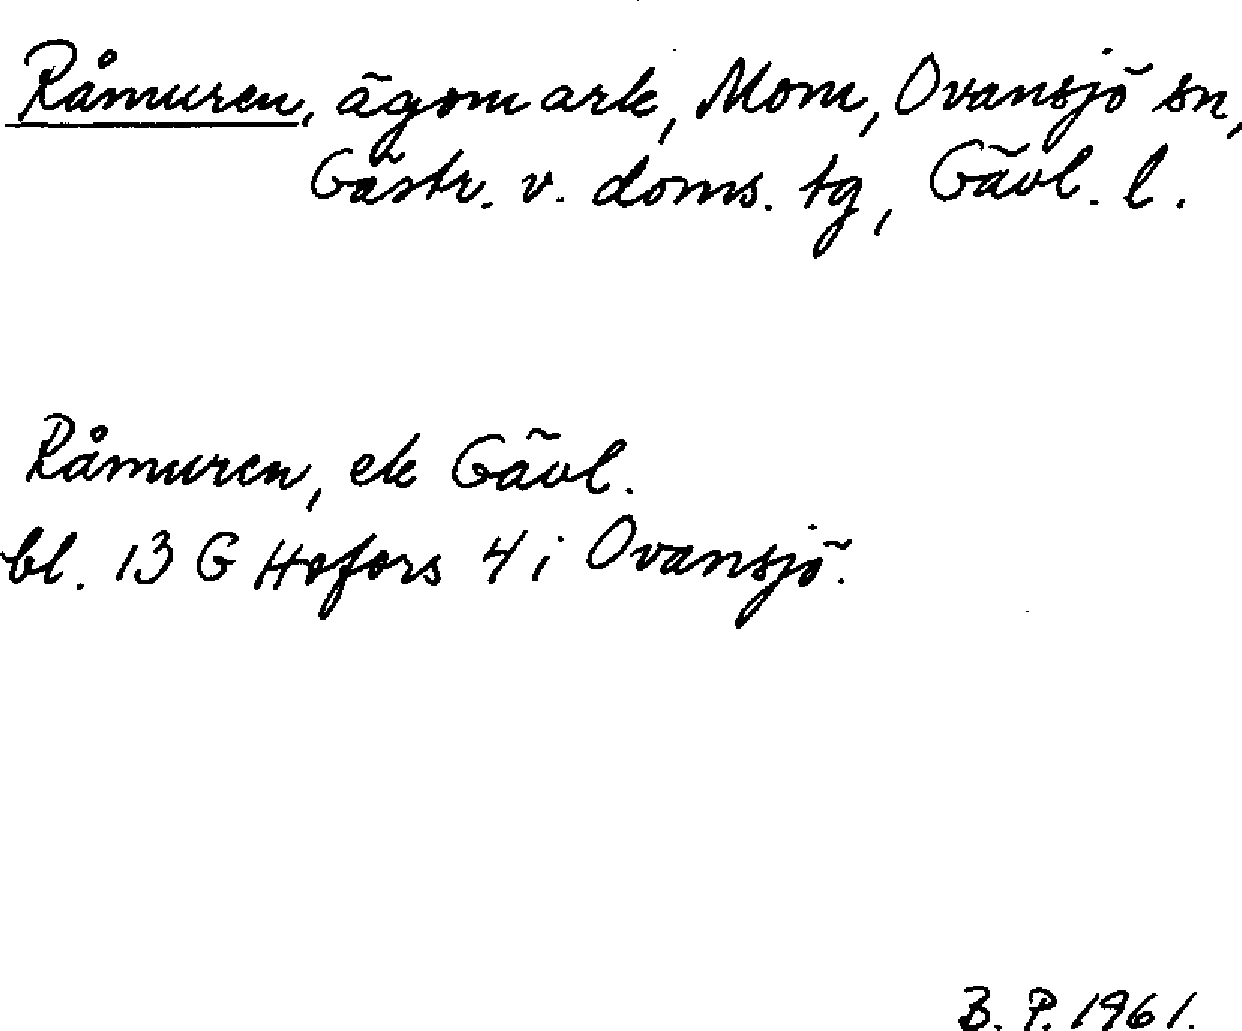 Råmuren, ägomark, Mom, Ovansjö sn,
Gästr. v. doms. tg, Gävl. l.
Råmuren, ek Gävl.
bl. 13 G Hofors 4 i Ovansjö.
B. P. 1961.